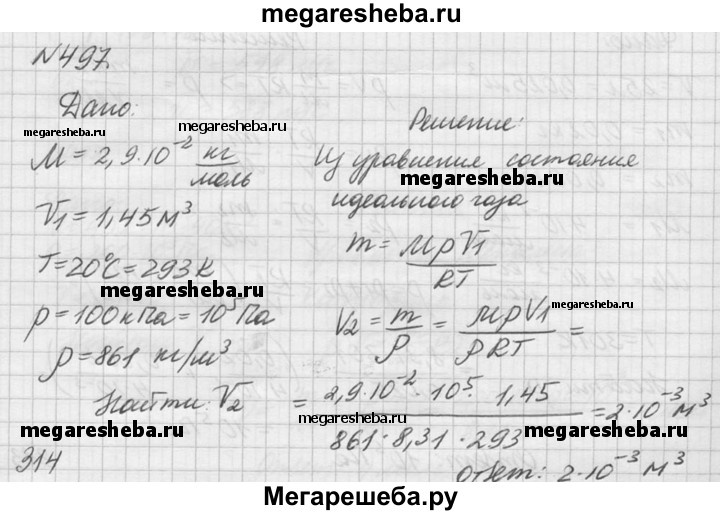 megaresheba.ru
N497.
Дано:
megaresheba.ru
megaresheba.ru
M = 2,9·10⁻² кг/моль
V₁ = 1,45 м³
T = 20°C = 293 K
megaresheba.ru
p = 100 кПа = 10⁵ Па
ρ = 861 кг/м³
Найти: V₂
megaresheba.ru
314
Решение:
Из уравнения состояния
megaresheba.ru
идеального газа
m = MpV₁/RT
megaresheba.ru
V₂ = m/ρ = MpV₁/ρRT =
= 2,9·10⁻²·10⁵·1,45/861·8,31·293 = 2·10⁻³ м³
megaresheba.ru
megaresheba.ru
ответ: 2·10⁻³ м³
Мегарешеба.ру